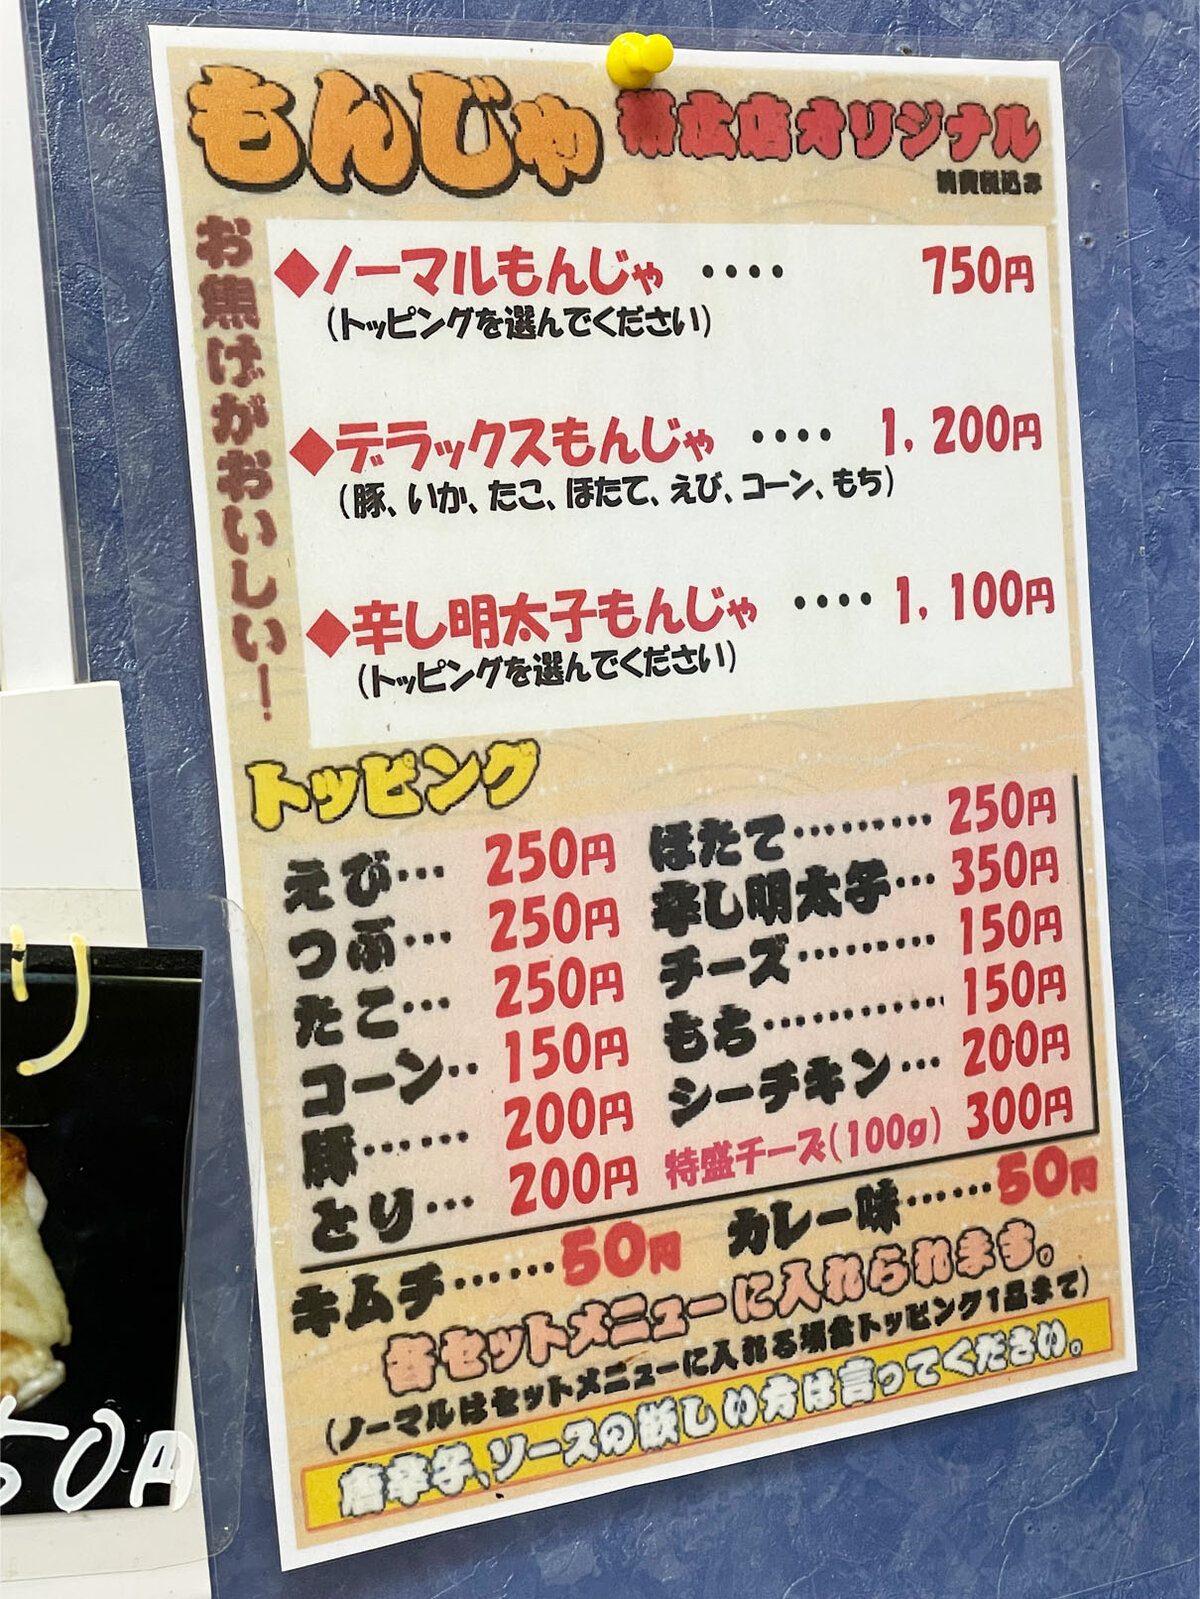 もんじゃ 帯広店オリジナル
消費税込み
お焦げがおいしい！
◆ノーマルもんじゃ ････ 750円
(トッピングを選んでください)
◆デラックスもんじゃ ････ 1,200円
(豚、いか、たこ、ほたて、えび、コーン、もち)
◆辛し明太子もんじゃ ････ 1,100円
(トッピングを選んでください)
トッピング
えび… 250円
つぶ… 250円
たこ… 250円
コーン‥ 150円
豚…… 200円
とり… 200円
ほたて……… 250円
辛し明太子… 350円
チーズ……… 150円
もち………… 150円
シーチキン… 200円
特盛チーズ(100g) 300円
キムチ……50円 カレー味……50円
各セットメニューに入れられます。
(ノーマルはセットメニューに入れる場合トッピング1品まで)
唐辛子、ソースの欲しい方は言ってください。
50円